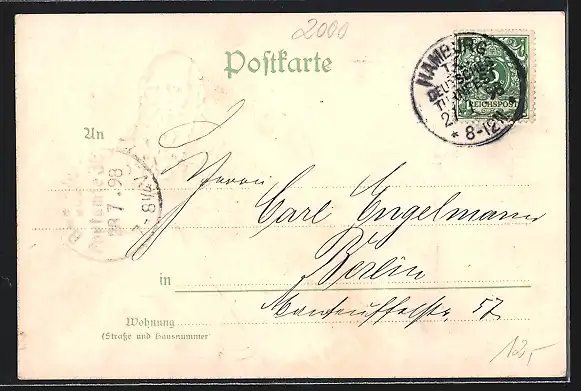 2000
Postkarte
HAMBURG
DEUTSCHES
TURNFEST
8-12N
REICHSPOST
5
An
7.98
7-8½N
Herrn
Carl Engelmann
in Berlin
Manteuffelstr. 57
Wohnung
(Straße und Hausnummer)
12,-